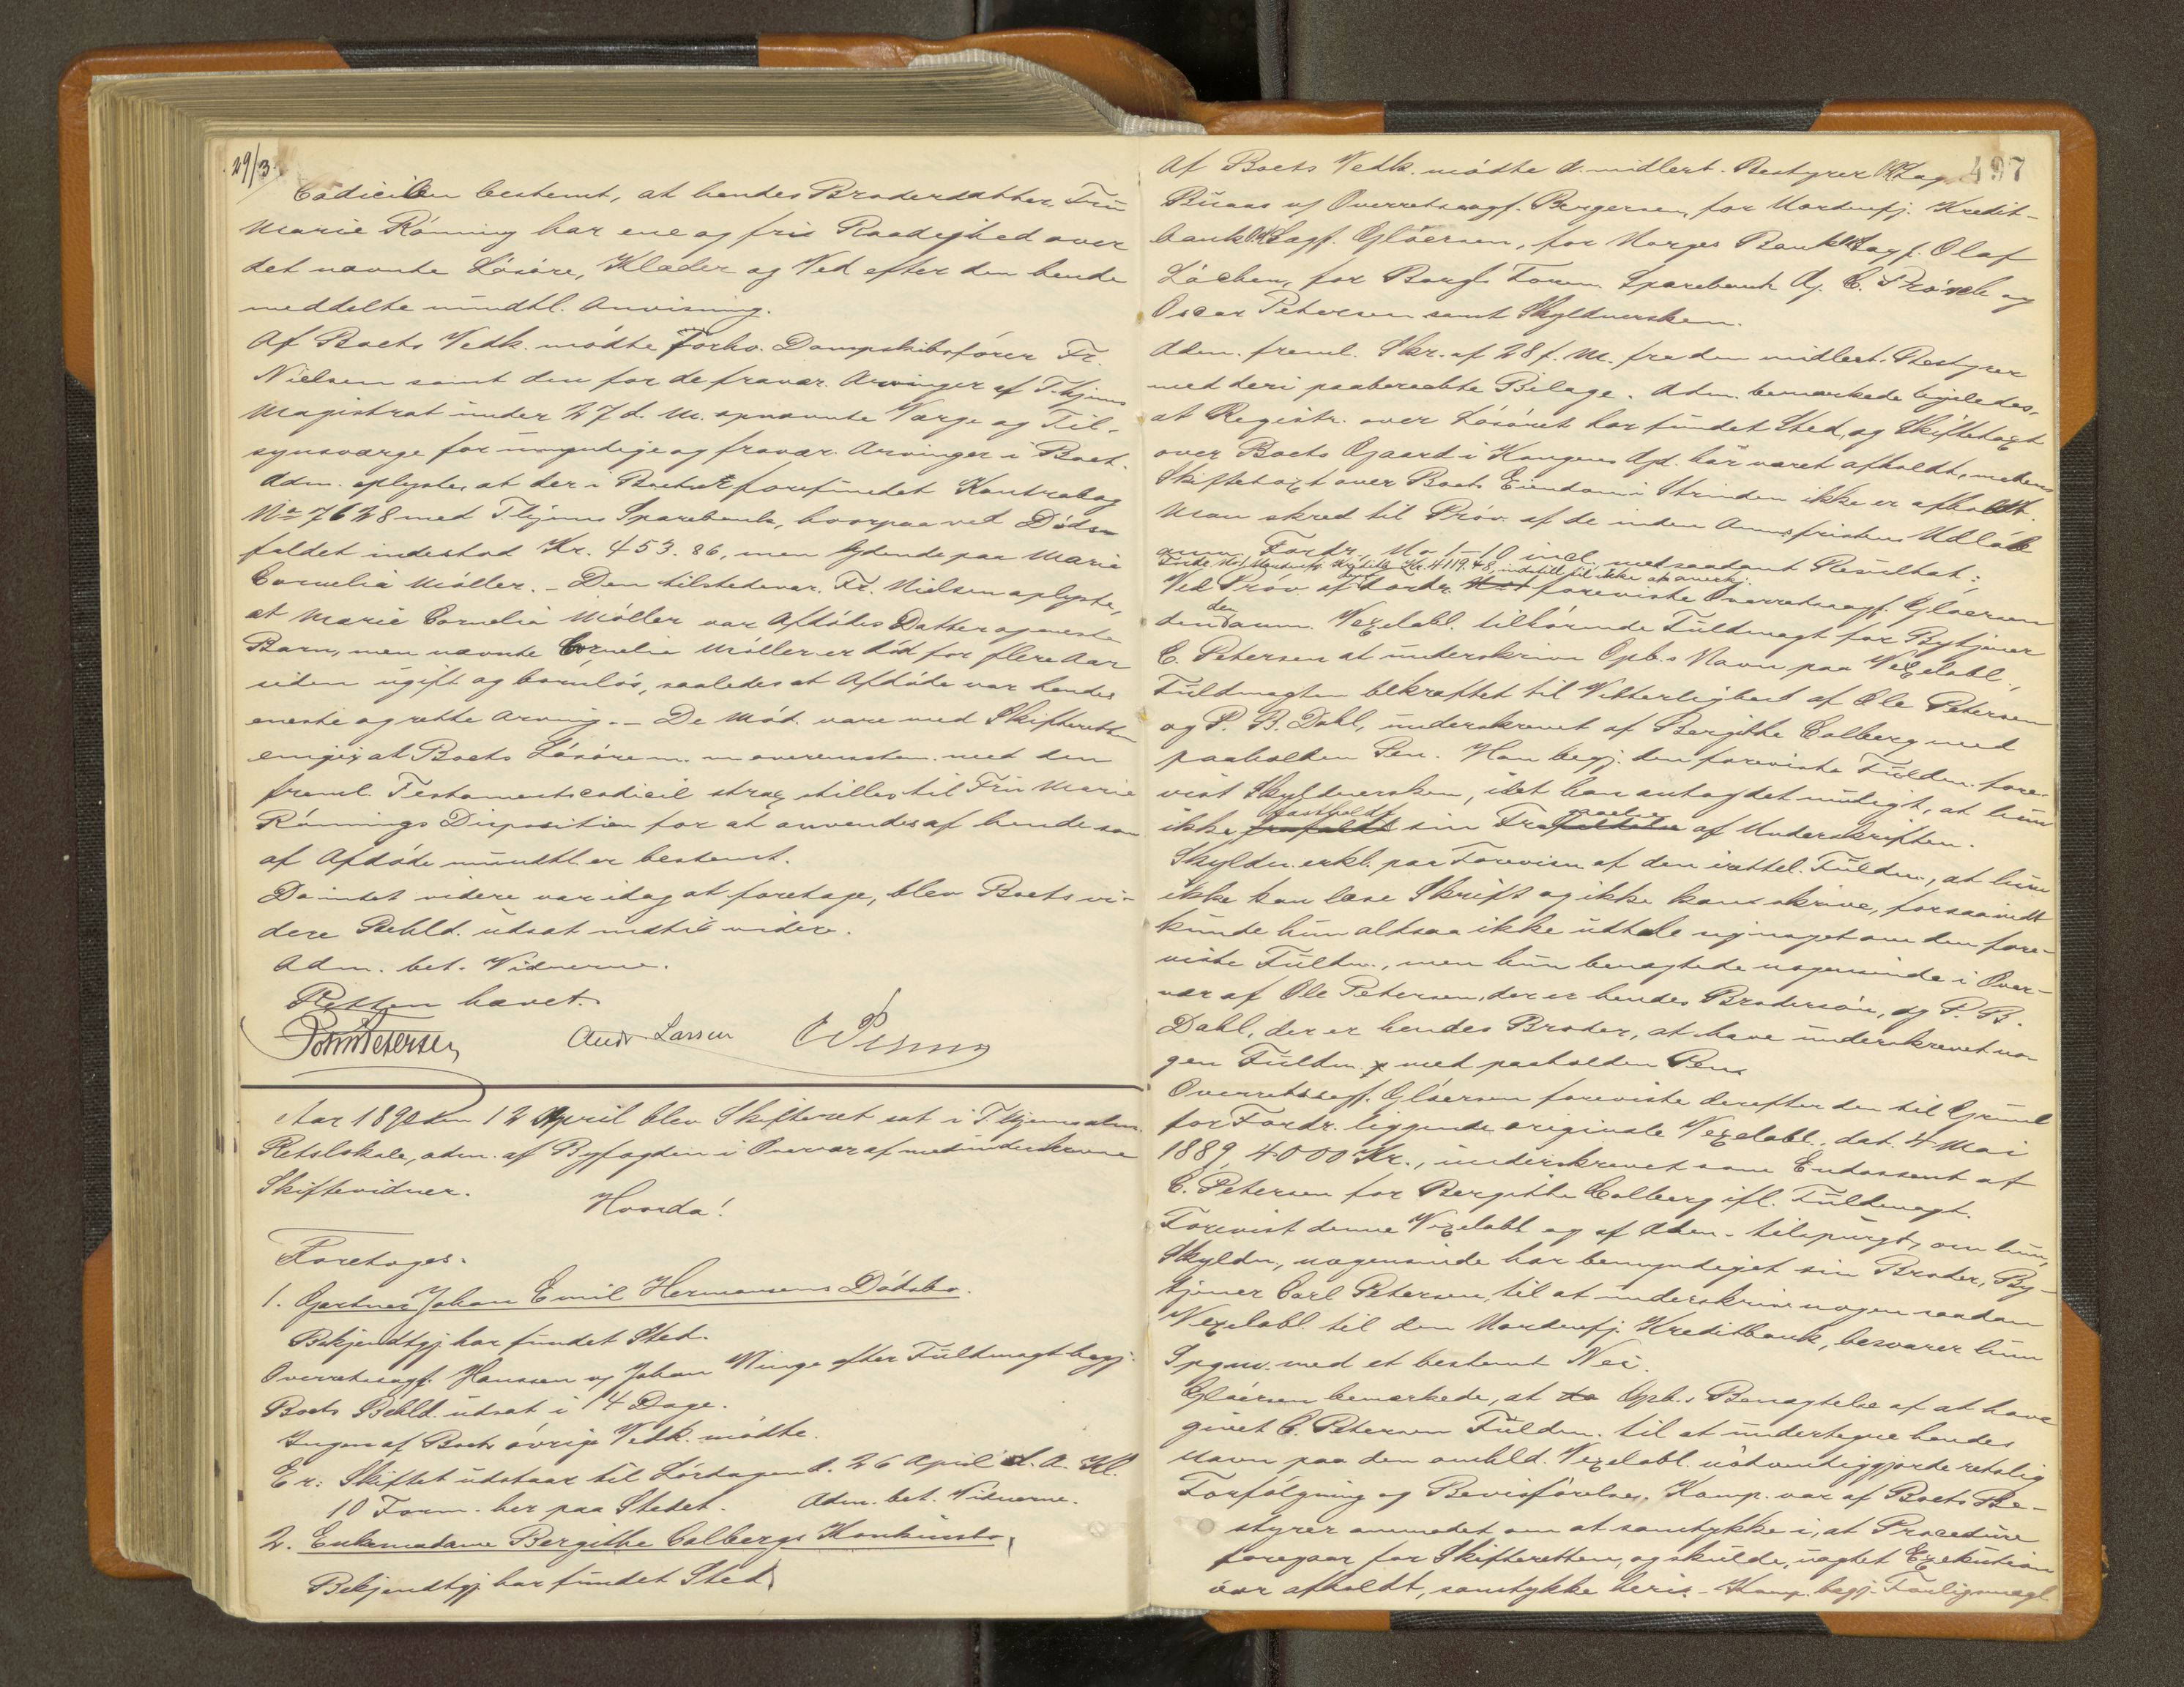 29/3.
Codicilen bestemt, at hendes Broderdatter Fru
Marie Rönning har ene og fri Raadighed over
det nævnte Lösöre, Klæder og Ved efter den hende
meddelte mundtl. Anvisning.
Af Boets Vedk. mödte forhv. Dampskibsförer Fr.
Nielsen samt den for de fravær. Arvinger af T.hjems
Magistrat under 27 d. M. opnævnte Værge og Til-
synsværge for umyndige og fravær. Arvinger i Boet.
Adm. oplyste, at der i Boet er forefundet Kontrabog
No 7628 med T.hjems Sparebank, hvorpaa ved Döds-
faldet indestod Kr. 453.86, men lydende paa Marie
Cornelia Möller. – Den tilstedevær. Fr. Nielsen oplyste,
at Marie Cornelia Möller var Afdödes Datter og eneste
Barn, men nævnte Cornelia Möller er död for flere Aar
siden ugift og barnlös, saaledes at Afdöde var hendes
eneste og rette Arving. – De Möd. vare med Skifteretten
enige i, at Boets Lösöre m. m. overensstem. med den
freml. Testamentscodicil strax stilles til Fru Marie
Rönnings Disposition for at anvendes af hende som
af Afdöde mundtl. er bestemt.
Da intet videre var idag at foretage, blev Boets vi-
dere Behld. udsat indtil videre.
Adm. bet. Vidnerne.
Retten hævet.
Petersen Andr. Larsen
Aar 1890 den 12 April blev Skifteret sat i T.hjems alm.
Retslokale, adm. af Byfogden i Overvær af medunderskrevne
Skiftevidner.
Hvorda!
Foretoges:
1. Gartner Johan Emil Hermansens Dödsbo.
Bekjendtgj. har fundet Sted.
Overretssagf. Hanssen og Johan Minge efter Fuldmagt begj.
Boets Behld. udsat i 14 Dage.
Ingen af Boets övrige Vedk. mödte.
Er: Skiftet udstaar til Lördagen d. 26 April d. A. Kl.
10 Form. her paa Stedet. Adm. bet. Vidnerne.
2. Enkemadame Bergithe Colbergs Konkursbo,
Bekjendtgj. har fundet Sted.
497
Af Boets Vedk. mödte d. midlert. Bestyrer O.r.sag
Buaas v/ Overretssagf. Bergersen, for Nordenfj. Kredit-
bank O.r.sagf. Glöersen, for Norges Bank O.r.sagf. Olaf
Löchen, for Borgl. Foren. Sparebank Aj. C. Prösch og
Oscar Petersen samt Skyldnersken.
Adm. freml. Skr. af 28 f. M. fra den midlert. Bestyrer
med deri paaberaabte Bilage. Adm. bemærkede ligeledes,
at Registr. over Lösöret har fundet Sted, og Skiftetaxt
over Boets Gaard i Kongens Gd. har været afholdt, medens
Skiftetaxt over Boets Eiendom i Strinden ikke er afholdt.
Man skred til Pröv. af de inden Anmfristens Udlöb
anm. Fordr. No 1–10 incl., med saadant Resultat:
Fordr. No 1 Nordenfj. Kr. 4119.48, indstill. til ikke at anerkj.
Ved Pröv. af denne Fordr. foreviste Overretssagf. Glöersen
den den anm. Vexelobl. tilhörende Fuldmagt for Bytjener
C. Petersen at underskrive Opb.s Navn paa Vexelobl.,
Fuldmagten bekræftet til Vitterlighed af Ole Petersen
og P. B. Dahl, underskrevet af Bergithe Colberg med
paaholden Pen. Han begj. den foreviste Fuldm. fore-
vist Skyldnersken, idet han antog det muligt, at hun
ikke fastholdt sin Fragaaelse af Underskriften.
Skyldn. erkl. paa Forevisn. af den irettel. Fuldm., at hun
ikke kan læse Skrift og ikke kan skrive, forsaavidt
kunde hun altsaa ikke udtale sig noget om den fore-
viste Fuldm., men hun benægtede nogensinde i Over-
vær af Ole Petersen, der er hendes Brodersön, og P. B.
Dahl, der er hendes Broder, at have underskrevet no-
gen Fuldm. med paaholden Pen.
Overretssagf. Glöersen foreviste derefter den til Grund
for Fordr. liggende originale Vexelobl., dat. 4 Mai
1889, 4000 Kr., underskrevet som Endossent af
C. Petersen for Bergithe Colberg ifl. Fuldmagt.
Forevist denne Vexelobl. og af Adm. tilspurgt, om hun,
Skyldn., nogensinde har bemyndiget sin Broder, By-
tjener Carl Petersen, til at underskrive nogen saadan
Vexelobl. til den Nordenfj. Kreditbank, besvarer hun
Spgm. med et bestemt Nei.
Glöersen bemærkede, at Opb.s Benægtelse af at have
givet C. Petersen Fuldm. til at undertegne hendes
Navn paa den omhld. Vexelobl. nödvendiggjorde retslig
Forfölgning og Bevisförelse. Komp. var af Boets Be-
styrer anmodet om at samtykke i, at Procedure
foregaar for Skifteretten, og skulde, uagtet Exekution
var afholdt, samtykke heri. – Komp. begj. Forligsmægl.